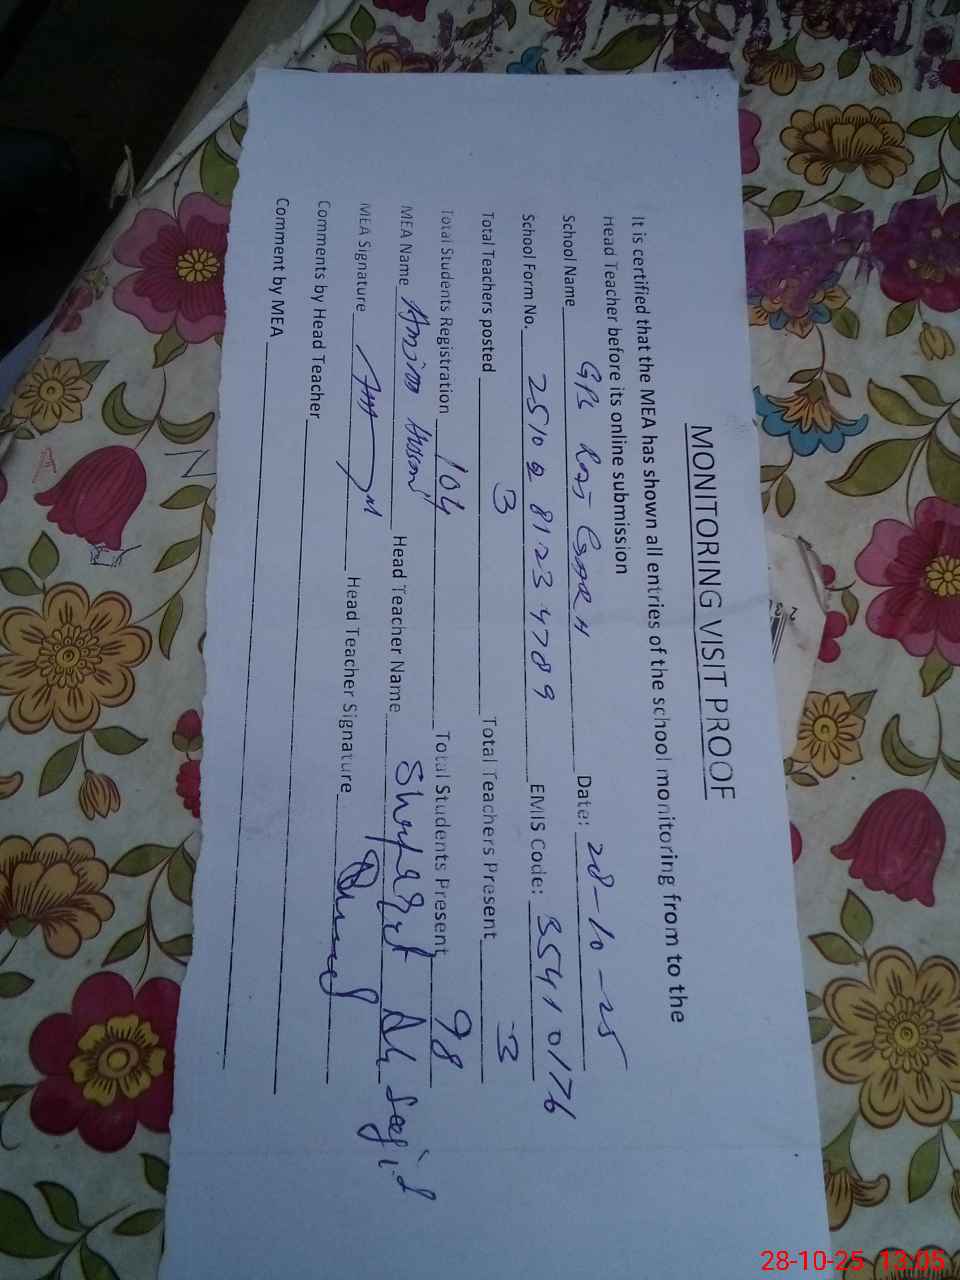 MONITORING VISIT PROOF
It is certified that the MEA has shown all entries of the school monitoring from to the
Head Teacher before its online submission
School Name GPS Date: 28-10-25
School Form No. 2510 8123 4789 EMIS Code: 35410176
Total Teachers posted 3 Total Teachers Present 3
Total Students Registration 104 Total Students Present 98
MEA Name Head Teacher Name
MEA Signature Head Teacher Signature
Comments by Head Teacher
Comment by MEA
28-10-25 13:05